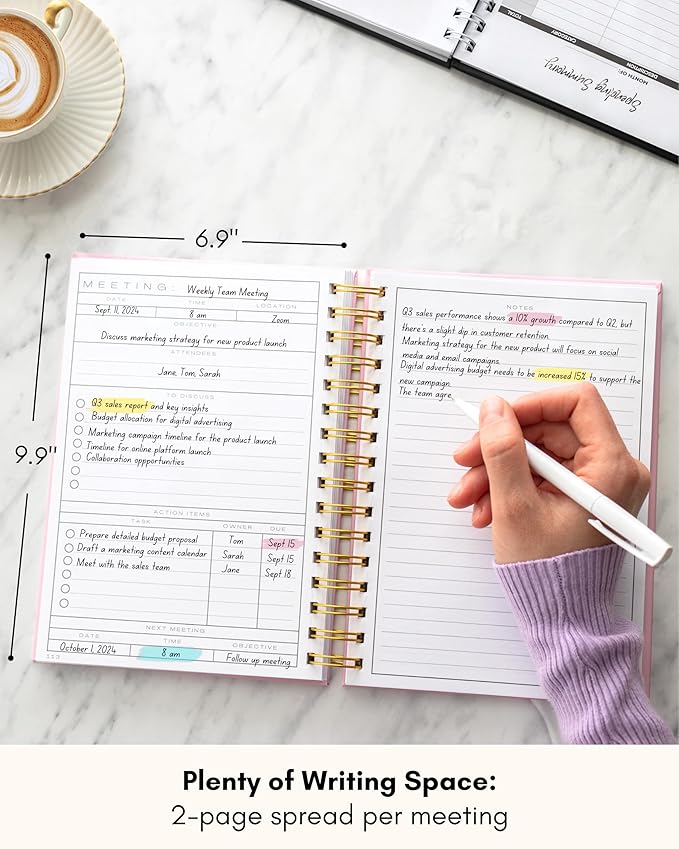 TOTAL
CATEGORY
DESCRIPTION
MONTH OF:
Spending Summary
6.9"
9.9"
MEETING: Weekly Team Meeting
DATE TIME LOCATION
Sept. 11, 2024 8 am Zoom
OBJECTIVE
Discuss marketing strategy for new product launch
ATTENDEES
Jane, Tom, Sarah
TO DISCUSS
Q3 sales report and key insights
Budget allocation for digital advertising
Marketing campaign timeline for the product launch
Timeline for online platform launch
Collaboration oppportunities
ACTION ITEMS
TASK OWNER DUE
Prepare detailed budget proposal Tom Sept 15
Draft a marketing content calendar Sarah Sept 15
Meet with the sales team Jane Sept 18
NEXT MEETING
DATE TIME OBJECTIVE
October 1, 2024 8 am Follow up meeting
113
NOTES
Q3 sales performance shows a 10% growth compared to Q2, but
there's a slight dip in customer retention.
Marketing strategy for the new product will focus on social
media and email campaigns.
Digital advertising budget needs to be increased 15% to support the
new campaign.
The team agre
Plenty of Writing Space:
2-page spread per meeting